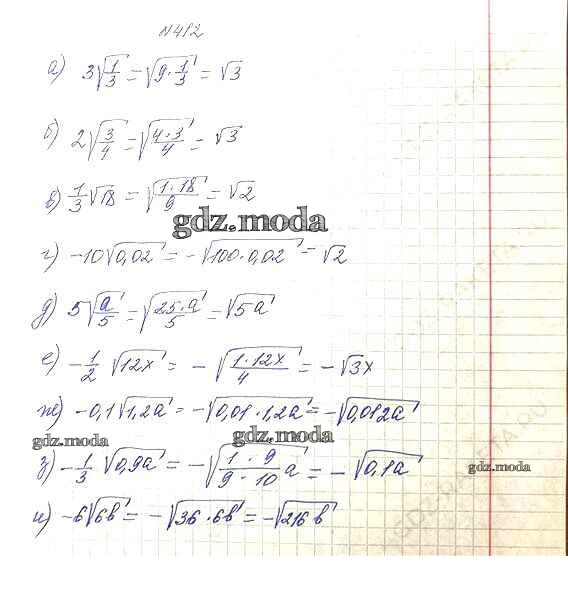 №482
а) 3√1/3 = √9·1/3 = √3
б) 2√3/4 = √4·3/4 = √3
в) 1/3√18 = √1·18/9 = √2
gdz.moda
г) -10√0,02 = -√100·0,02 = √2
д) 5√a/5 = √25·a/5 = √5a
е) -1/2 √12x = -√1·12x/4 = -√3x
ж) -0,1√1,2a = -√0,01·1,2a = -√0,012a
gdz.moda gdz.moda gdz.moda
з) -1/3 √0,9a = -√1·9/9·10 a = -√0,1a
и) -6√6b = -√36·6b = -√216b